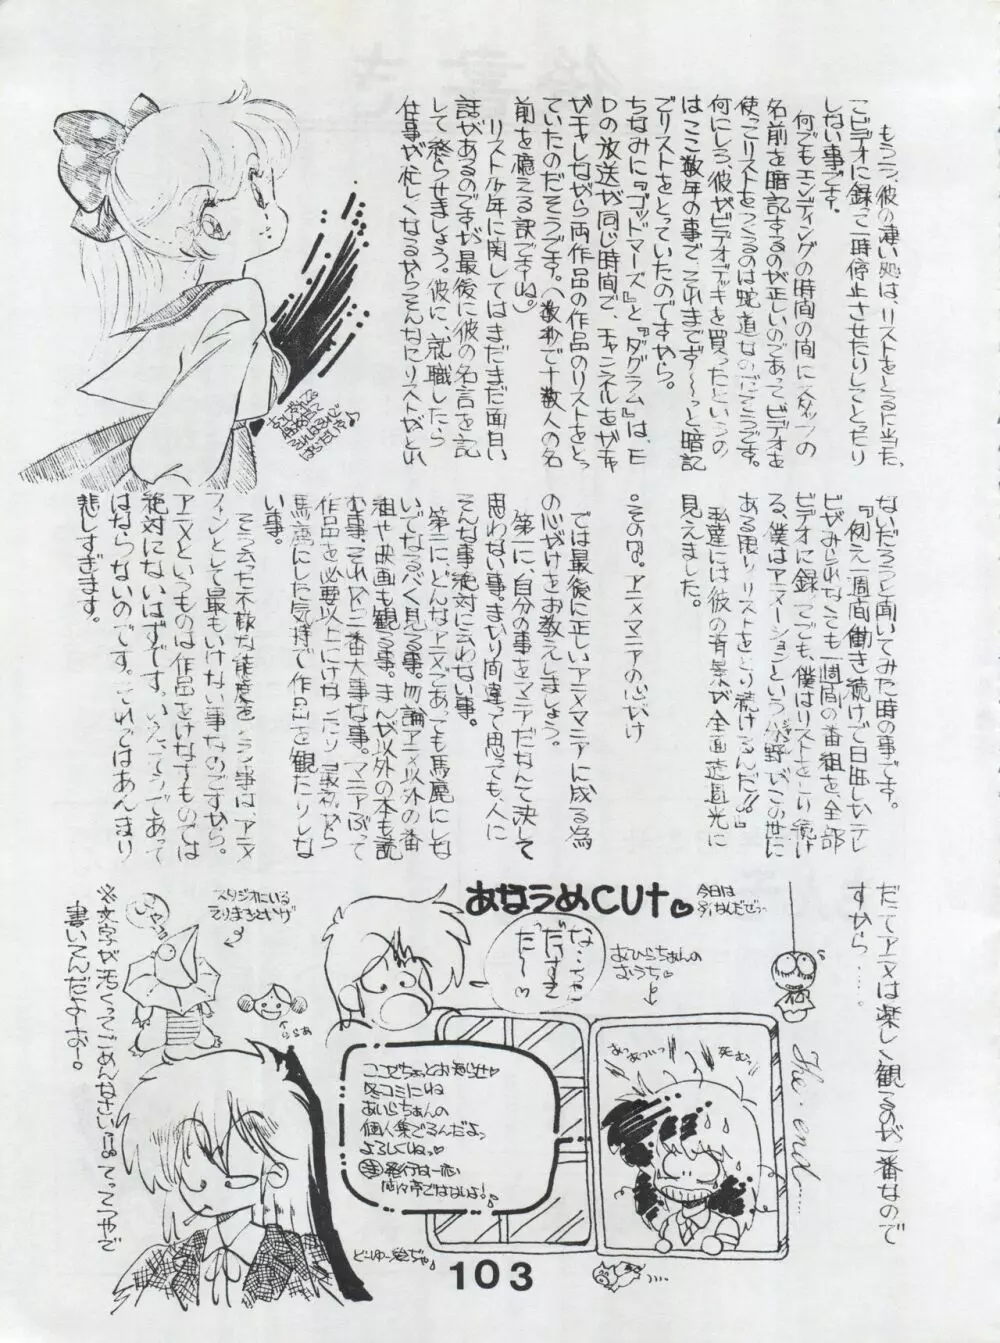 もう一つ、彼の凄い処は、リストをとるに当た
ってビデオに録って一時停止させたりしてとったり
しない事です。
何でもエンディングの時間の間にスタッフの
名前を暗記するのが正しいのであってビデオを
使ってリストをつくるのは邪道なのだそうです。
何にしろ、彼がビデオデッキを買ったというの
はここ数年の事で、それまでずーっと暗記
でリストをとっていたのですから。
ちなみに『ゴッドマーズ』と『ダグラム』は、E
Dの放送が同じ時間で、チャンネルをガチャ
ガチャしながら両作品の作品のリストをとっ
ていたのだそうです。(数秒で十数人の名
前を憶える訳ですね。)
リスト少年に関してはまだまだ面白い
話があるのですが最後に彼の名言を記
して終らせましょう。彼に、就職したら
仕事が忙しくなるからそんなにリストがとれ
ないだろうと聞いてみた時の事です。
『例え一週間働き続けで日曜しかテレ
ビがみられなくても一週間の番組を全部
ビデオに録ってでも、僕はリストをとり続け
る、僕はアニメーションという分野がこの世に
ある限りリストをとり続けるんだ!!』
私達には彼の背景が全画透過光に
見えました。
。その8。アニメマニアの心がけ
では最後に正しいアニメマニアに成る為
の心がけをお教えしましょう。
第一に、自分の事をマニアだなんて決して
思わない事。まかり間違って思っても、人に
そんな事絶対に云わない事。
第二に、どんなアニメであっても馬鹿にしな
いでなるべく見る事。勿論アニメ以外の番
組や映画も観る事。まんが以外の本も読
む事。これが一番大事な事。マニアぶって
作品を必要以上にけなしたり最初から
馬鹿にした気持で作品を観たりしな
い事。
そう云った不敵な態度をとる事は、アニメ
ファンとして最もいけない事なのですから。
アニメというものは作品をけなすものでは
絶対にないはずです。いえ、そうであって
はならないのです。それってはあんまり
悲しすぎます。
だってアニメは楽しく観るのが一番なので
すから……。
The・end……
あなうめCUt♡
今日は
な…なん
だってーっ
だ〜♡
あいらちゃんの
おうち♡
あっあついっ
死むっ
スタジオにいる
てりまろといげ
ららぁ
ここでちょっとお知らせ♡
冬コミにね
あいらちゃんの
個人集でるんだよっ
よろしくねっ♡
注 発行は一応
どーゆー絵ぢゃ
※文字が汚くってごめんなさい
書いてんだよーおー。
103